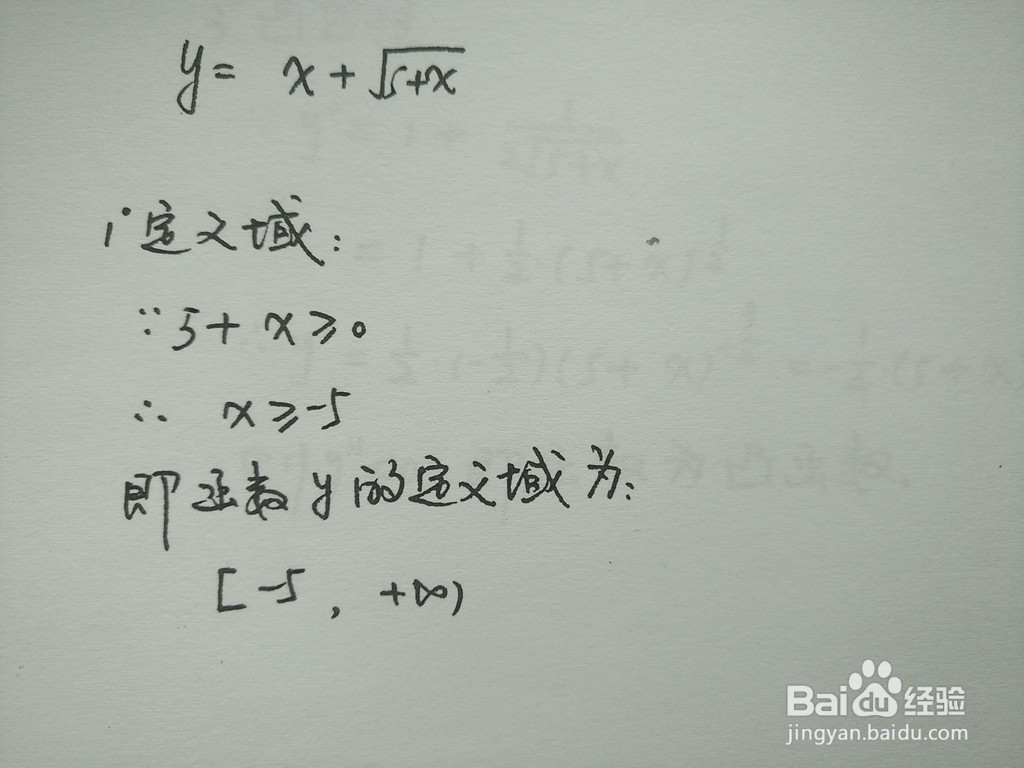 y= x+√5+x
1°定义域:
∵5+x≥0
∴ x≥-5
即函数y的定义域为:
[-5, +∞)
Bai du 经验
jingyan.baidu.com